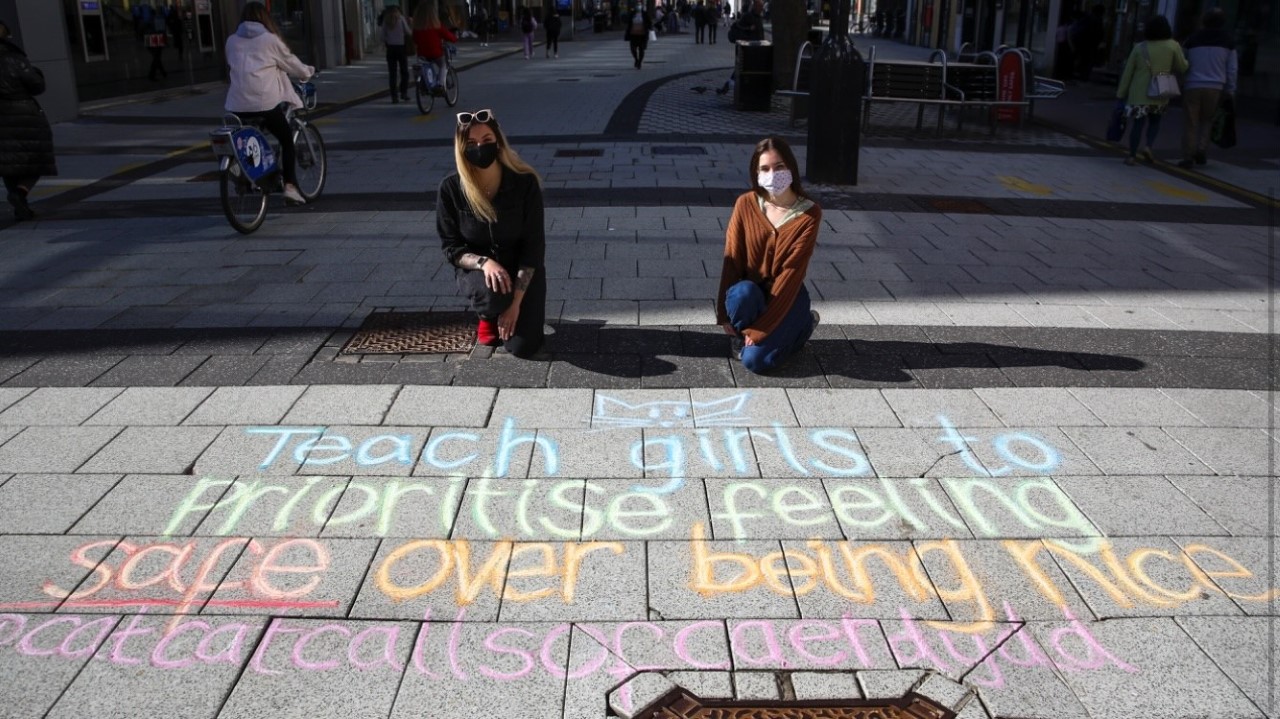 Teach girls to
prioritise feeling
safe over being nice
@catcallsofcaerdydd